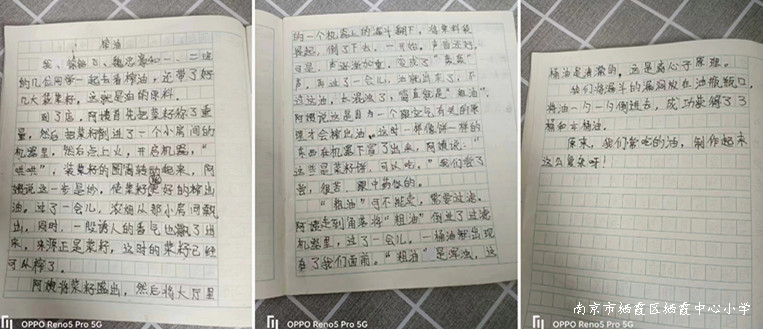 榨油
我、
的几位同学一起去看榨油,还带了好
几大袋菜籽,这就是油的原料。
到了店,阿姨首先把菜籽称了重
量,然后由菜籽倒进了一个小房间的
机器里,然后点上火,开启机器,“
哄哄”,装菜籽的圆筒转动起来,阿
姨说这一步是炒,使菜籽更好的榨出
油。过了一会儿,浓烟从那小房间飘
出,同时,一股诱人的香气也飘了过
来,来源正是菜籽,这时的菜籽已经
可以榨了。
阿姨将菜籽盛出,然后将大厅里
的一个机器上的漏斗翻下,将菜籽装
起,倒了下去,一开始,声音还好,
可是,声逐渐加重,变成了“轰轰”
声,再过了一会儿,油就出来了,不
过这油,太混浊了,简直就是“粗油”。
阿姨说这是因为一个跟空气有关的原
理才会榨出油。这时一群像饼一样的
东西在机器下穿了出来,阿姨说:“
这些是菜籽饼,可以吃。”我们尝了
尝,很苦,跟中药似的。
“粗油”可不能卖,需要过滤。
阿姨走到角落将“粗油”倒进了过滤
机器里,过了一会儿,一桶油就出现
在了我们面前。“粗油”是浑浊,这
桶油是清澈的,这是离心子原理。
他们将漏斗的漏洞放在油瓶瓶口,
将油一勺一勺倒进去,成功获得了3
桶和半桶油。
原来,我们常吃的油,制作起来
这么复杂呀!
OPPO Reno5 Pro 5G
OPPO Reno5 Pro 5G
OPPO Reno5 Pro 5G
南京市栖霞区栖霞中心小学